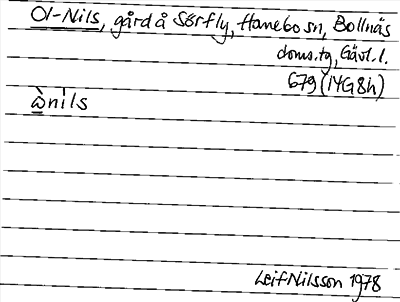 Ol-Nils, gård å Sörfly, Hanebo sn, Bollnäs
doms.tg, Gävl.l.
679 (14G8h)
ànils
Leif Nilsson 1978